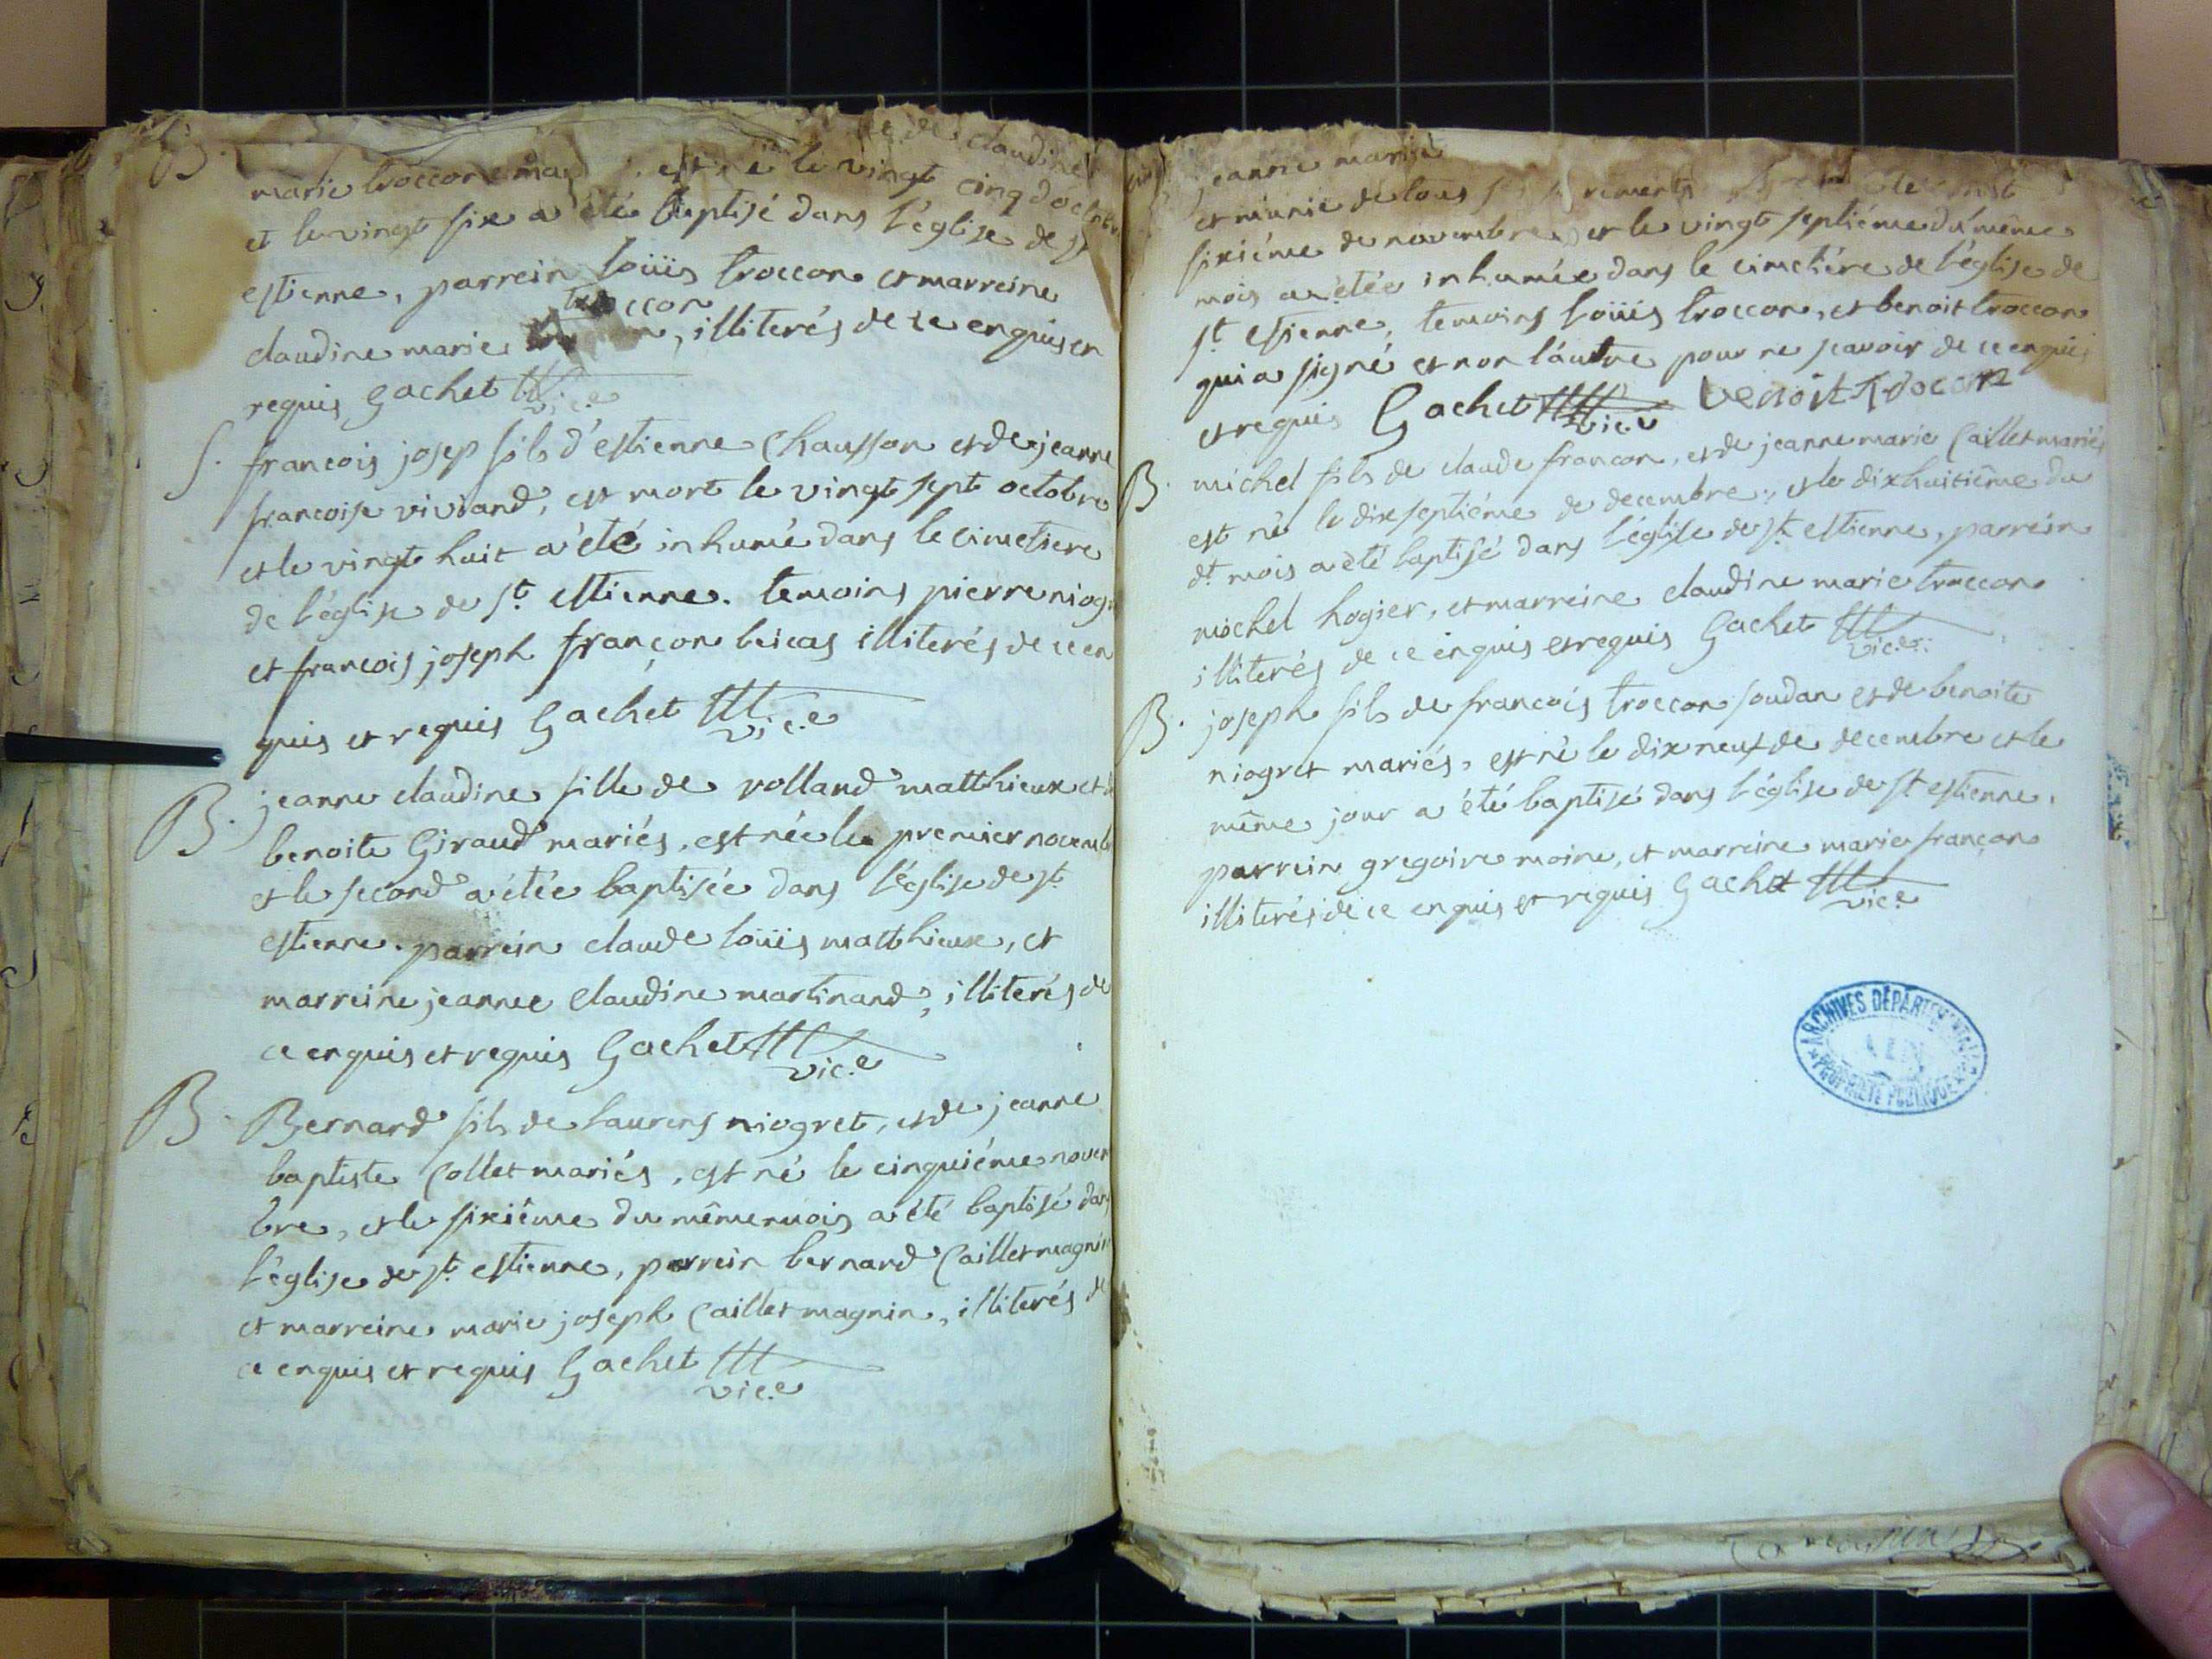 B.
de claudine
marie troccon est né le vingt cinq d'octobre
et le vingt six a été baptisé dans l'église de st
estienne, parrein loüis troccon et marreine
troccon
claudine marie, illiterés de ce enquis en
requis Gachet vic.e
S. francois josep fils d'estienne Chausson et de jeanne
francoise viviand, est mort le vingt sept octobre
et le vingt huit a été inhumé dans le cimetiere
de l'église de st. estienne. temoins pierre niogr
et francois joseph françon beicas illiterés de ce en
quis et requis Gachet vic.e
B. jeanne claudine fille de rolland matthieux et d
benoite Giraud mariés, est née le premier novemb
et le second a étée baptisée dans l'église de st.
estienne. parrein claude loüis matthieux, et
marreine jeanne claudine martinand, illiterés de
ce enquis et requis Gachet vic.e
B. Bernard fils de laurens niogret, et de jeanne
baptiste Collet mariés, est né le cinquiéme novem
bre, et le sixiême du même mois a été baptisé dans
l'église de st. estienne, parrein bernard Caillet magnin
et marreine marie joseph Caillet magnin, illiterés de
ce enquis et requis Gachet vic.e
jeanne marie
et munie de tous
sixiéme de novembre, et le vingt septiéme du même
mois a étée inhumée dans le cimetiére de l'église de
st. estienne, temoins loüis troccon, et benoit troccon
qui a signé et non l'autre pour ne scavoir de ce enquis
et requis Gachet vic.e benoit trocon
B. michel fils de claude francon, et de jeanne marie Caillet mariés
est né le dixseptiéme de decembre, et le dixhuitiême du
dt. mois a été baptisé dans l'église de st. estienne, parrein
michel hogier, et marreine claudine marie troccon
illiterés de ce enquis et requis Gachet vic.e
B. joseph fils de francois troccon soudan et de benoite
niogret mariés, est né le dix neuf de decembre et le
même jour a été baptisé dans l'église de st estienne.
parrein gregoire moine, et marreine marie françon
illiterés de ce enquis et requis Gachet vic.e
ARCHIVES DÉPARTEMENTALES
AIN
PROPRIÉTÉ PUBLIQUE